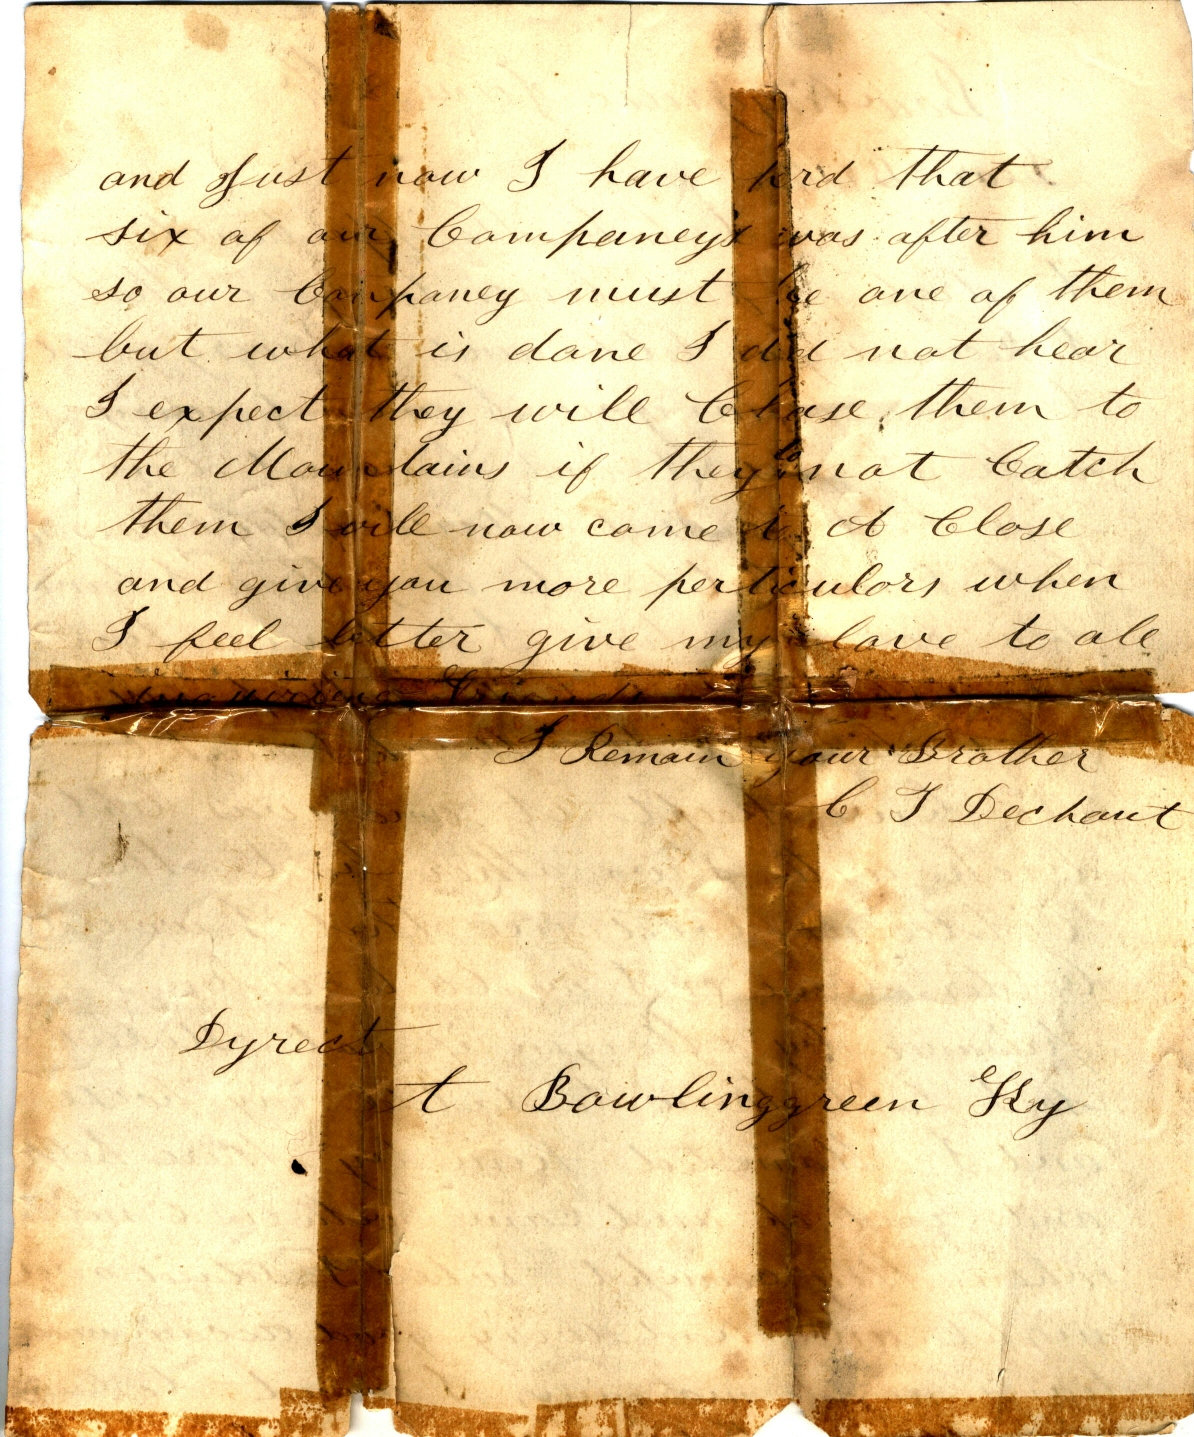 and Just now I have herd that
six of our Companeys was after him
so our Companey must be one of them
but what is done I did not hear
I expect they will Chase them to
the Mountains if they do not Catch
them I will now come to A Close
and give you more perticulors when
I feel better give my love to all
inquireing friends
I Remain your Brother
C T Dechant
Dyrect
t Bowlinggreen Ky